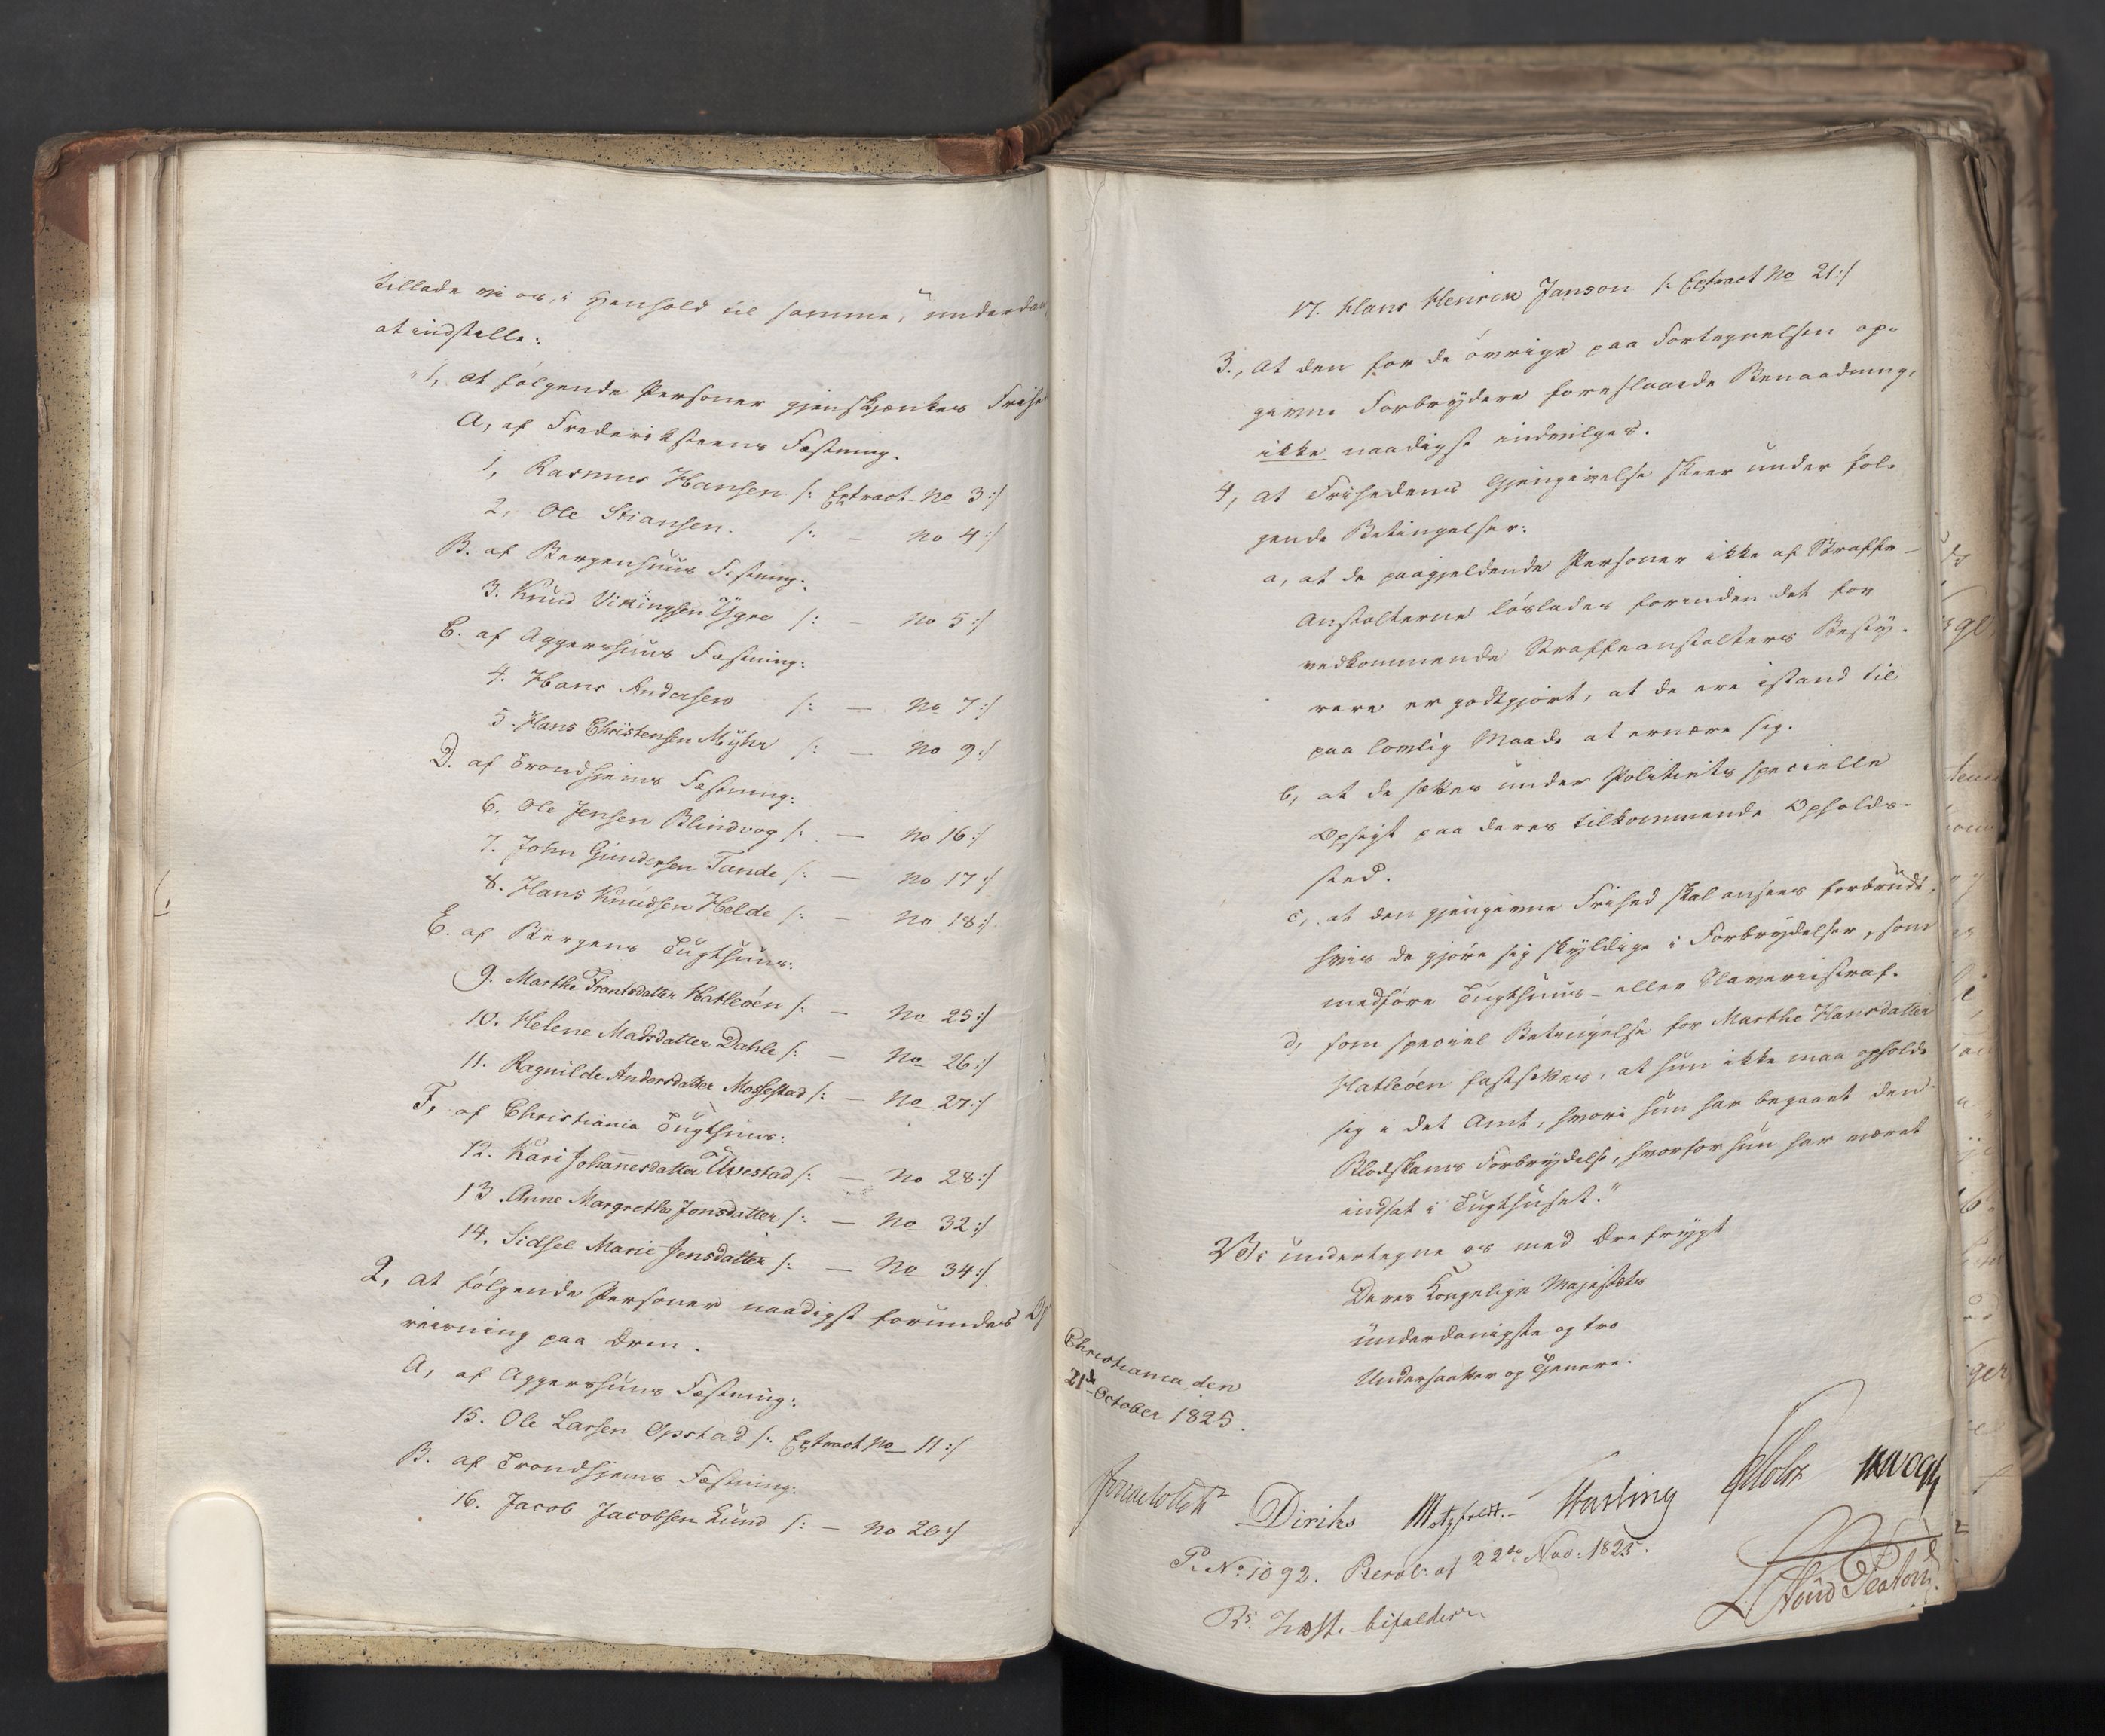 tillade vi os, i Henhold til samme, underdan
at indstille:
1, at følgende Personer gjenskjænkes Frihe
A, af Frederiksteens Fæstning.
1, Rasmus Hansen /: Extract No 3:/
2, Ole Stiansen. /: — No 4:/
B. af Bergenhuus Fæstning:
3. Knud Vikingsen Ygre /: — No 5:/
C. af Aggershuus Fæstning:
4. Hans Andersen /: — No 7:/
5. Hans Christensen Myhr /: — No 9:/
D. af Trondhjems Fæstning:
6. Ole Jensen Blindvog /: — No 16:/
7. John Gundersen Tande /: — No 17:/
8. Hans Knudsen Helde /: — No 18:/
E. af Bergens Tugthuus:
9. Marthe Frantsdatter Hatleøen /: — No 25:/
10. Helene Madsdatter Dahle /: — No 26:/
11. Ragnilde Andersdatter Mossestad /: — No 27:/
F, af Christiania Tugthuus:
12. Kari Johannesdatter Ulvestad /: — No 28:/
13. Anne Margrethe Jonsdatter /: — No 32:/
14. Sidsel Marie Jensdatter /: — No 34:/
2, at følgende Personer naadigst forundes
reisning paa Æren.
A, af Aggershuus Fæstning:
15. Ole Larsen Opstad /: Extract No 11:/
B. af Trondhjems Fæstning:
16. Jacob Jacobsen Lund /: — No 20:/
17. Hans Henrik Janson /: Extract No 21:/
3., at den for de øvrige paa Fortegnelsen op-
givne Forbrydere foreslaaede Benaadning,
ikke naadigst indvilges.
4, at Frihedens Gjengivelse skeer under føl-
gende Betingelser:
a, at de paagjeldende Personer ikke af Straffe-
Anstalterne løslades forinden det for
vedkommende Straffeanstalters Besty-
rere er godtgjort, at de ere istand til
paa lovlig Maade at ernære sig.
b, at de sættes under Politiets specielle
Opsigt paa deres tilkommende Opholds-
sted.
c, at den gjengivne Frihed skal ansees forbrudt,
hvis de gjøre sig skyldige i Forbrydelser, som
medføre Tugthuus- eller Slaveriestraf.
d, som speciel Betingelse for Marthe Hansdatter
Hatleöen fastsættes, at hun ikke maa opholde
sig i det Amt, hvori hun har begaaet den
Blodskams Forbrydelse, hvorfor hun har været
indsat i Tugthuset."
Vi undertegne os med Ærefrygt
Deres Kongelige Majestæts
underdanigste og tro
Undersaatter og Tjenere.
Christiania den
21de October 1825.
Diriks Motzfeldt. Fasting Holst
P. No 1092. Resol: af 22de Nov: 1825.